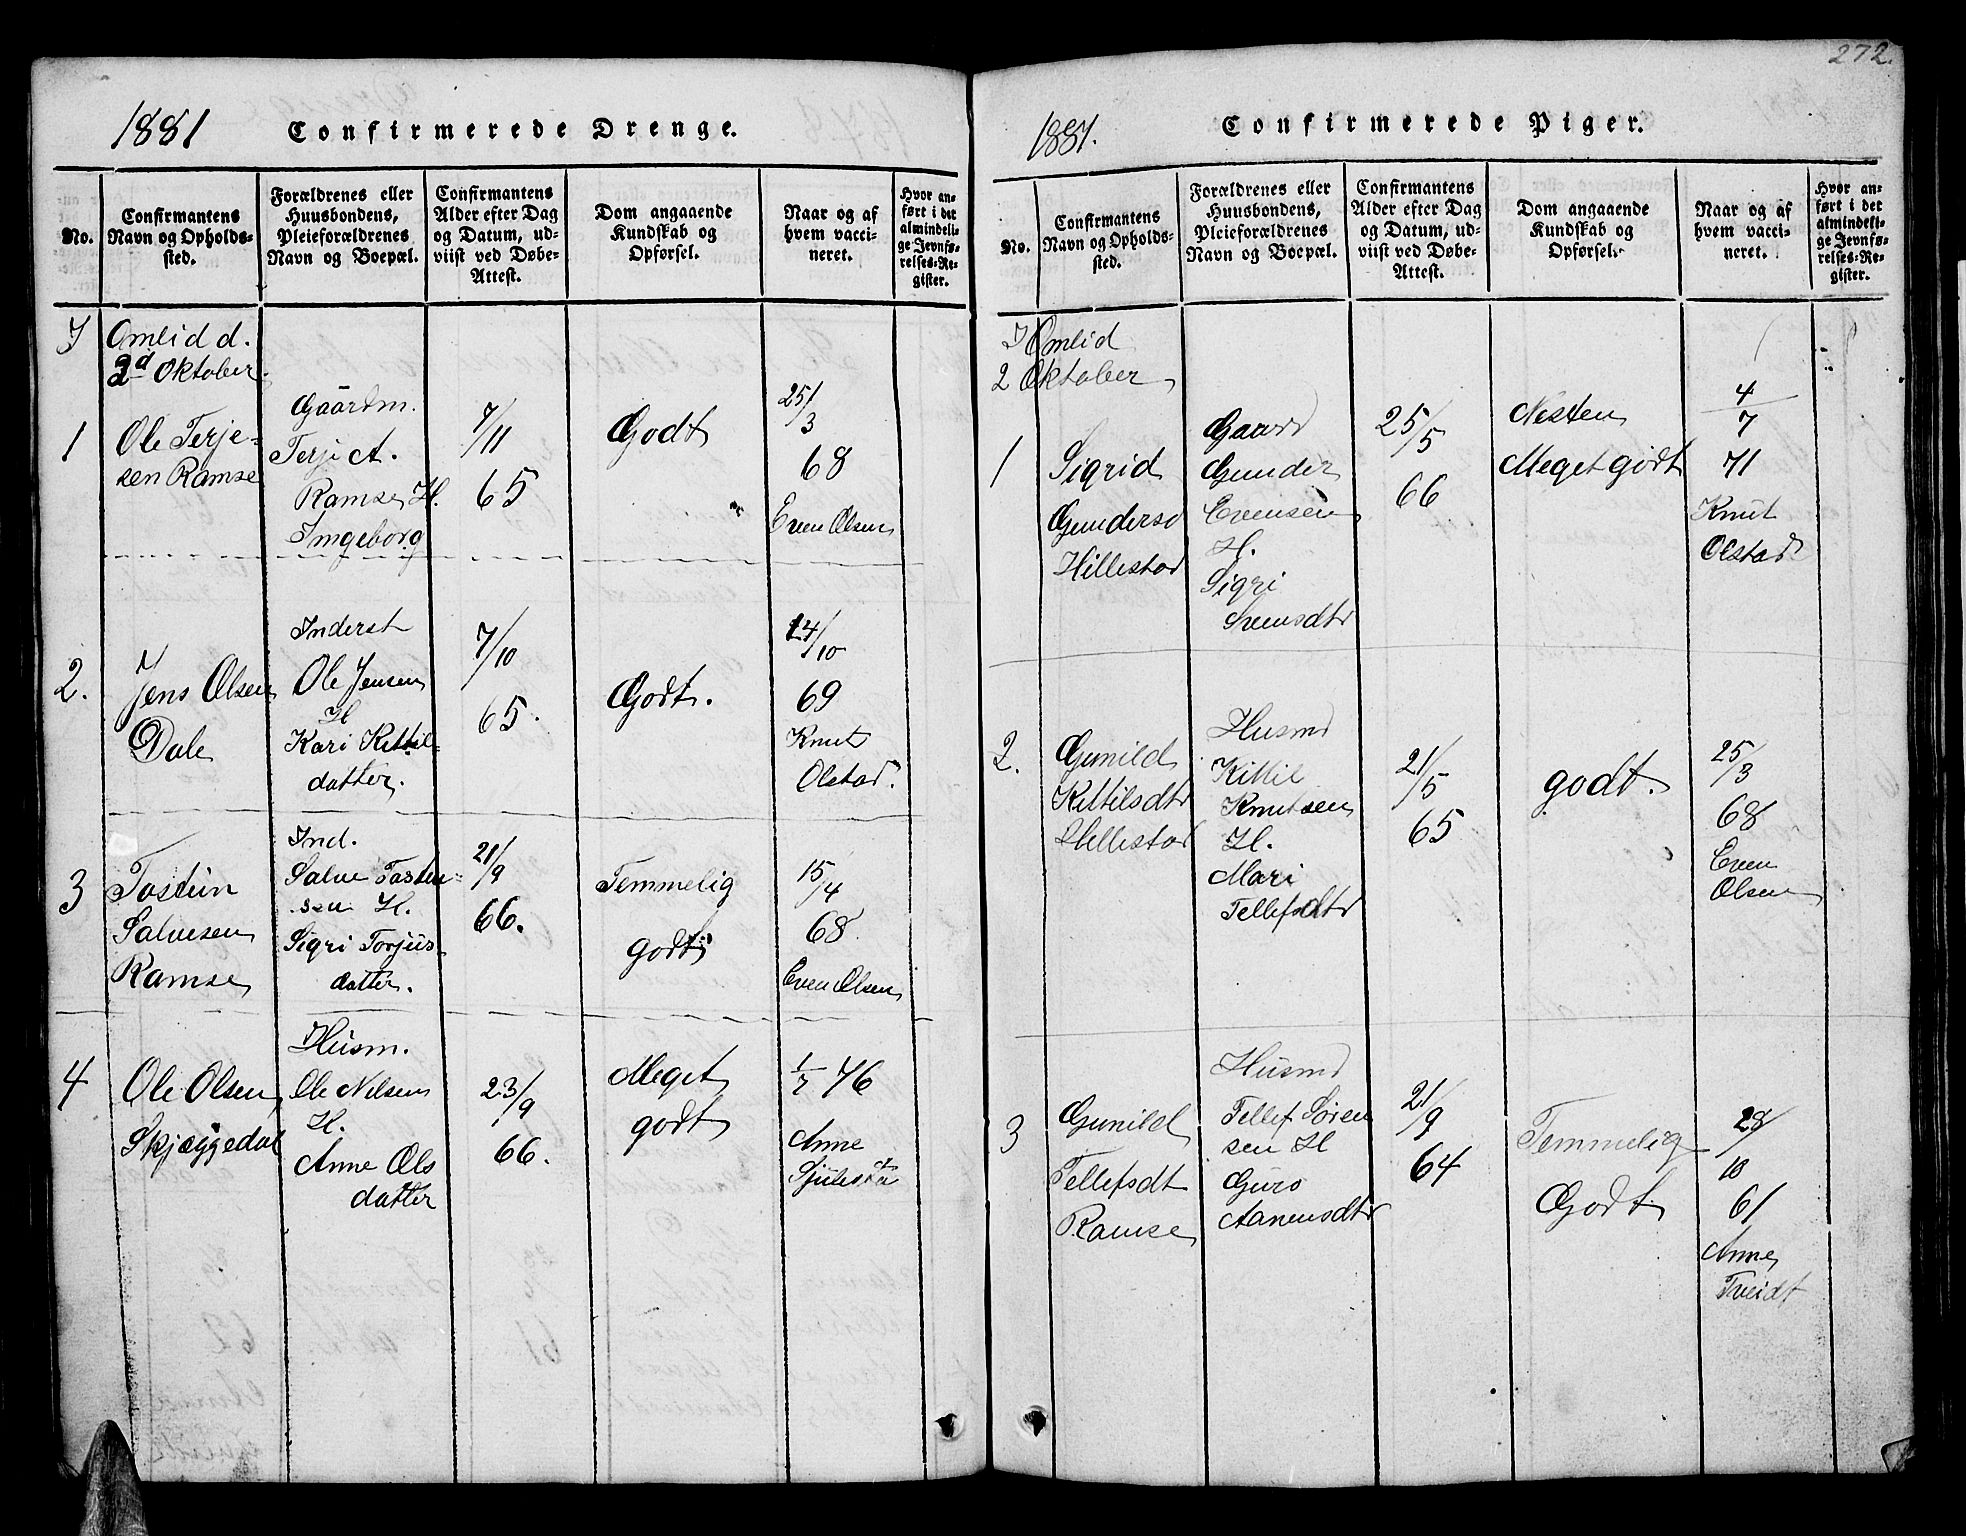 1881 Confirmerede Drenge.
No.
Confirmantens
Navn og Opholds-
sted.
Forældrenes eller
Huusbondens,
Pleieforældrenes
Navn og Boepæl.
Confirmantens
Alder efter Dag
og Datum, ud-
viist ved Døbe-
Attest.
Dom angaaende
Kundskab og
Opførsel.
Naar og af
hvem vacci-
neret.
Hvor an-
ført i det
almindeli-
ge Jevnfø-
relses-Re-
gister.
I Omlid d.
2d Oktober
1
Ole Terje-
sen Ramse
Gaardm.
Terje A.
Ramse, H.
Ingeborg
7/11
65
Godt
25/3
68
Even Olsen
2.
Jens Olsen
Dale
Inderst
Ole Jensen
H
Kari Kittil-
datter.
7/10
65.
Godt.
14/10
69
Knut
Olstad.
3
Tostein
Salvesen
Ramse
Ind.
Salve Tosten-
sen H.
Sigri Torjus-
datter.
21/9
66.
Temmelig
godt
15/4
68
Even Olsen
4
Ole Olsen
Skjæggedal
Husm.
Ole Nilsen
H.
Anne Ols
datter
23/9
66.
Meget
godt
1/7 76
Anne
272.
1881. Confirmerede Piger.
No.
Confirmantens
Navn og Opholds-
sted.
Forældrenes eller
Huusbondens,
Pleieforældrenes
Navn og Boepæl.
Confirmantens
Alder efter Dag
og Datum, ud-
viist ved Døbe-
Attest.
Dom angaaende
Kundskab og
Opførsel.
Naar og af
hvem vacci-
neret.
Hvor an-
ført i det
almindeli-
ge Jevnfø-
relses-Re-
gister.
I Omlid
2 Oktober
1
Sigrid
Gunders
Hillestad
Gaard
Gunder
Evensen
H.
Sigri
Svensdtr
25/5
66
Nesten
Meget godt
4/7
71
Knut
Olstad
2.
Gunild
Kittilsdtr
Hillestad
Husmd
Kittil
Knutsen
H.
Mari
Tellefsdtr
21/5
65
godt.
25/3
68
Even
Olsen
3
Gunild
Tellefsdt
Ramse
Husmd
Tellef Sören
sen H
Guro
Aanensdtr
21/9
64
Temmelig
Godt
28/10
61
Anne
Tveidt